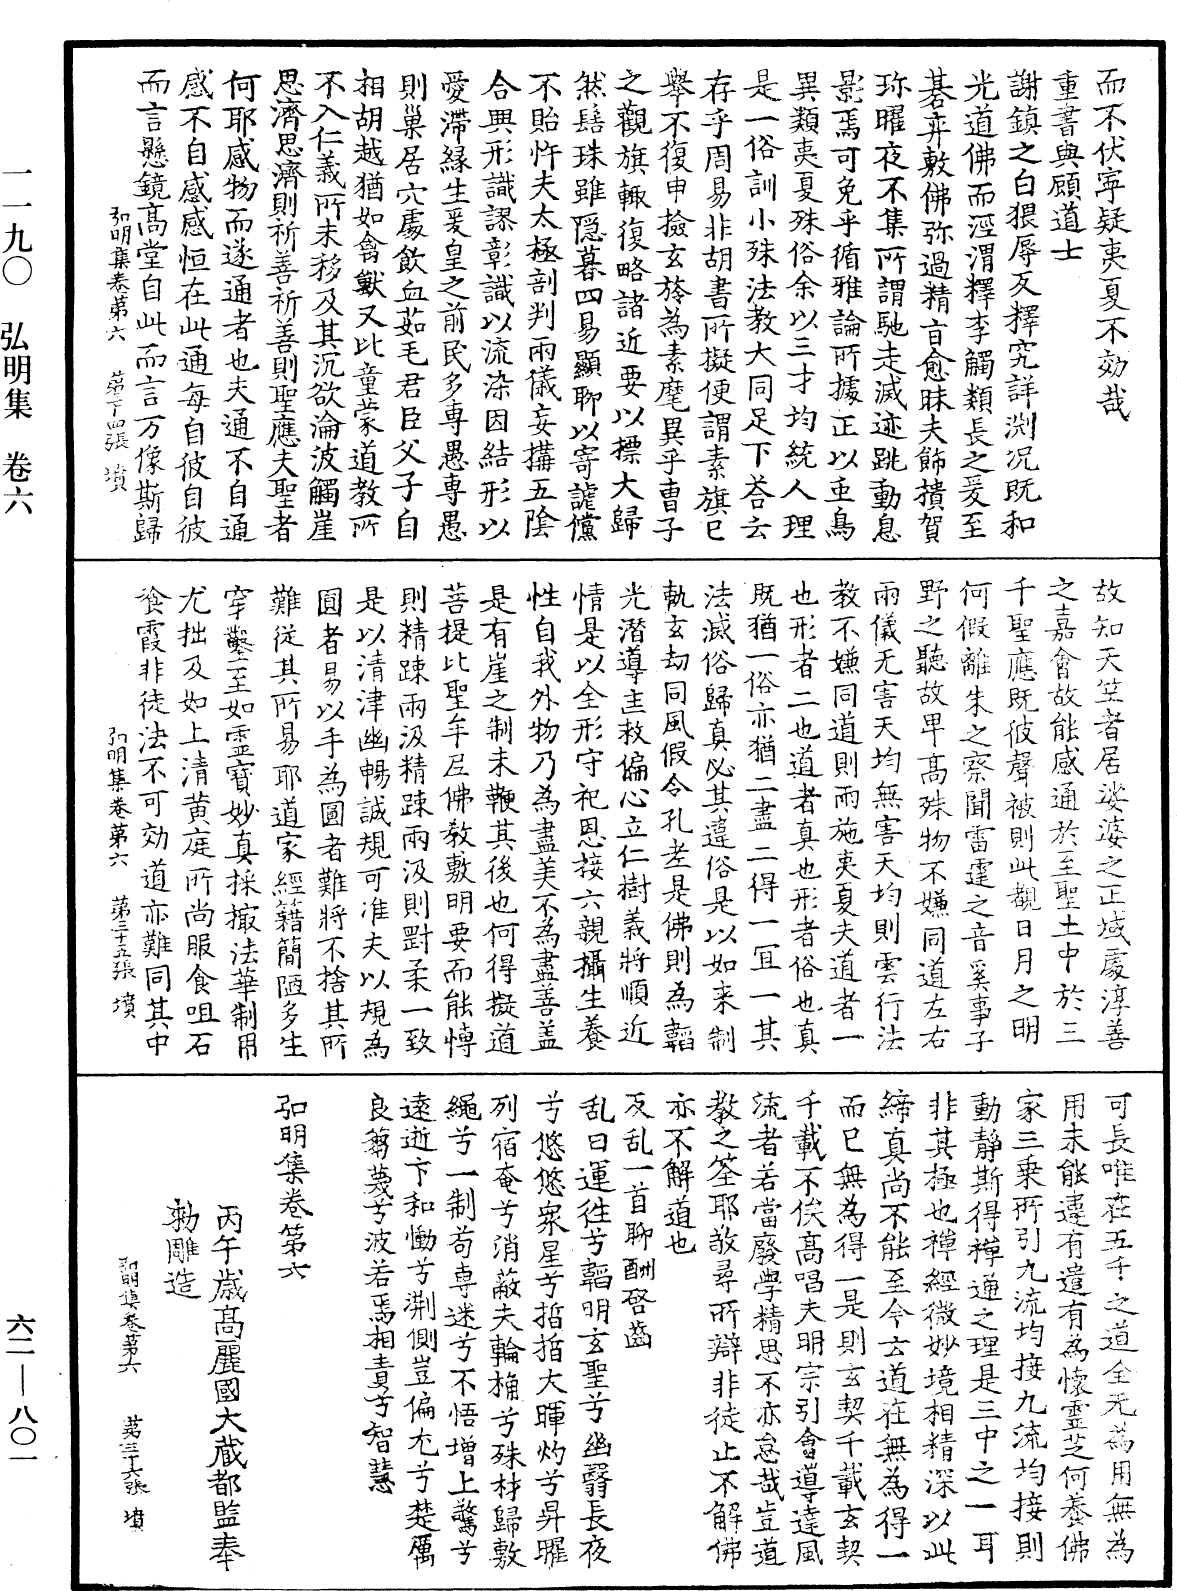 一一九〇　弘明集　卷六
六二—八〇一
而不伏寧疑夷夏不効哉
重書與顧道士
謝鎮之白猥辱反釋究詳渕况既和
光道佛而涇渭釋李觸類長之爰至
碁弈敷佛弥過精盲愈昧夫飾擯賀
珎曜夜不集所謂馳走滅迹跳動息
影焉可免乎循雅論所據正以虫鳥
異類夷夏殊俗余以三才均統人理
是一俗訓小殊法教大同足下荅云
存乎周易非胡書所擬便謂素旗已
舉不復申撿玄旍為素麾異乎曹子
之觀旗輙復略諸近要以標大歸
然髻珠雖隱暮四易顯聊以寄謔儻
不貽忤夫太極剖判兩儀妄搆五陰
合興形識謬彰識以流染因結形以
愛滯緣生爰皇之前民多専愚専愚
則巢居穴處飲血茹毛君臣父子自
相胡越猶如禽獸又比童蒙道教所
不入仁義所未移及其沉欲淪波觸崖
思濟思濟則祈善祈善則聖應夫聖者
何耶感物而遂通者也夫通不自通
感不自感感恒在此通每自彼自彼
而言懸鏡髙堂自此而言万像斯歸
弘明集卷第六　第卅四張　墳
故知天竺者居娑婆之正域處淳善
之嘉會故能感通於至聖土中於三
千聖應既彼聲被則此覩日月之明
何假離朱之察聞雷霆之音奚事子
野之聽故卑髙殊物不嫌同道左右
兩儀无害天均無害天均則雲行法
教不嫌同道則雨施夷夏夫道者一
也形者二也道者真也形者俗也真
既猶一俗亦猶二盡二得一冝一其
法滅俗歸真必其違俗是以如来制
軌玄劫同風假令孔老是佛則為韜
光潜導主救偏心立仁樹義將順近
情是以全形守祀恩接六親攝生養
性自我外物乃為盡美不為盡善盖
是有崖之制未鞭其後也何得擬道
菩提比聖牟尼佛教敷明要而能博
則精踈兩汲精踈兩汲則對柔一致
是以清津幽暢誠規可准夫以規為
圓者易以手為圓者難將不捨其所
難從其所易耶道家經籍簡陋多生
穿鑿至如靈寶妙真採撮法華制用
尤拙及如上清黄庭所尚服食咀石
飡霞非徒法不可効道亦難同其中
弘明集卷第六　第三十五張　墳
可長唯在五千之道全无為用無為
用未能違有遣有為懐靈芝何養佛
家三乘所引九流均接九流均接則
動靜斯得禪通之理是三中之一耳
非其極也禪經微妙境相精深以此
締真尚不能至今云道在無為得一
而已無為得一是則玄契千載玄契
千載不俟髙唱夫明宗引會導達風
流者若當廢學精思不亦怠哉豈道
教之筌耶敬尋所辯非徒止不解佛
亦不解道也
反乱一首聊酬啓齒
乱曰運往兮韜明玄聖兮幽翳長夜
兮悠悠衆星兮晢晢大暉灼兮昇曜
列宿奄兮消蔽夫輪桷兮殊材歸敷
繩兮一制苟専迷兮不悟增上驚兮
遠逝卞和慟兮荆側豈偏尤兮楚厲
良蒭蔑兮波若焉相責兮智慧
弘明集卷第六
丙午歳髙麗國大蔵都監奉
勑雕造
弘明集卷第六　第三十六張　墳